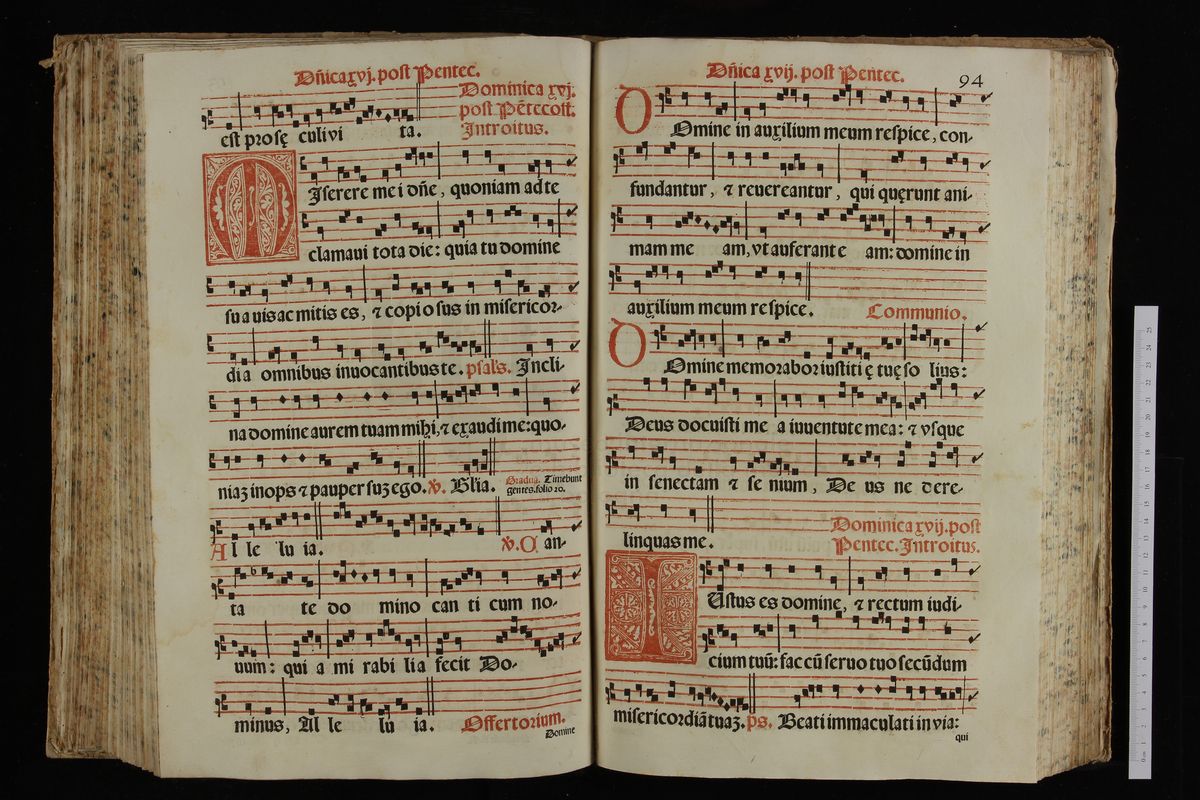 Dñica xvj. post Pentec.
est prosę culivi ta.
Dominica xvj.
post Pẽtecost.
Introitus.
MIserere mei dñe, quoniam ad te
clamaui tota die: quia tu domine
suauis ac mitis es, ⁊ copiosus in misericor-
dia omnibus inuocantibus te. psal's. Incli-
na domine aurem tuam mihi, ⁊ exaudi me: quo-
niaz inops ⁊ pauper suz ego. V. Gl'ia. Gradua. Timebunt
gentes. folio 20.
Al le lu ia. V. Can-
ta te do mino can ti cum no-
uum: qui a mi rabi lia fecit Do-
minus, Al le lu ia. Offertorium.
Domine
Dñica xvij. post Pentec. 94
DOmine in auxilium meum respice, con-
fundantur, ⁊ reuereantur, qui quęrunt ani-
mam me am, vt auferant e am: domine in
auxilium meum respice. Communio.
DOmine memorabor iustiti ę tuę so lius:
Deus docuisti me a iuuentute mea: ⁊ vsque
in senectam ⁊ se nium, De us ne dere-
linquas me. Dominica xvij. post
Pentec. Introitus.
IUstus es domine, ⁊ rectum iudi-
cium tuũ: fac cũ seruo tuo secũdum
misericordiã tuaz. ps. Beati immaculati in via:
qui